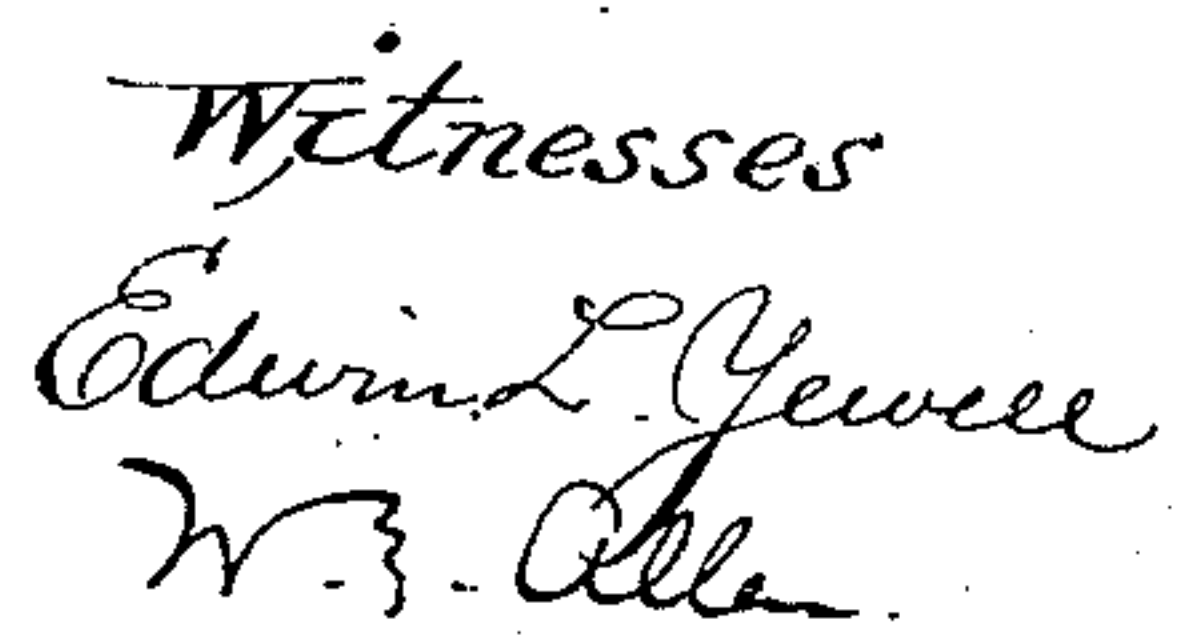 Witnesses
Edwin L. Yewell
W. Allen.